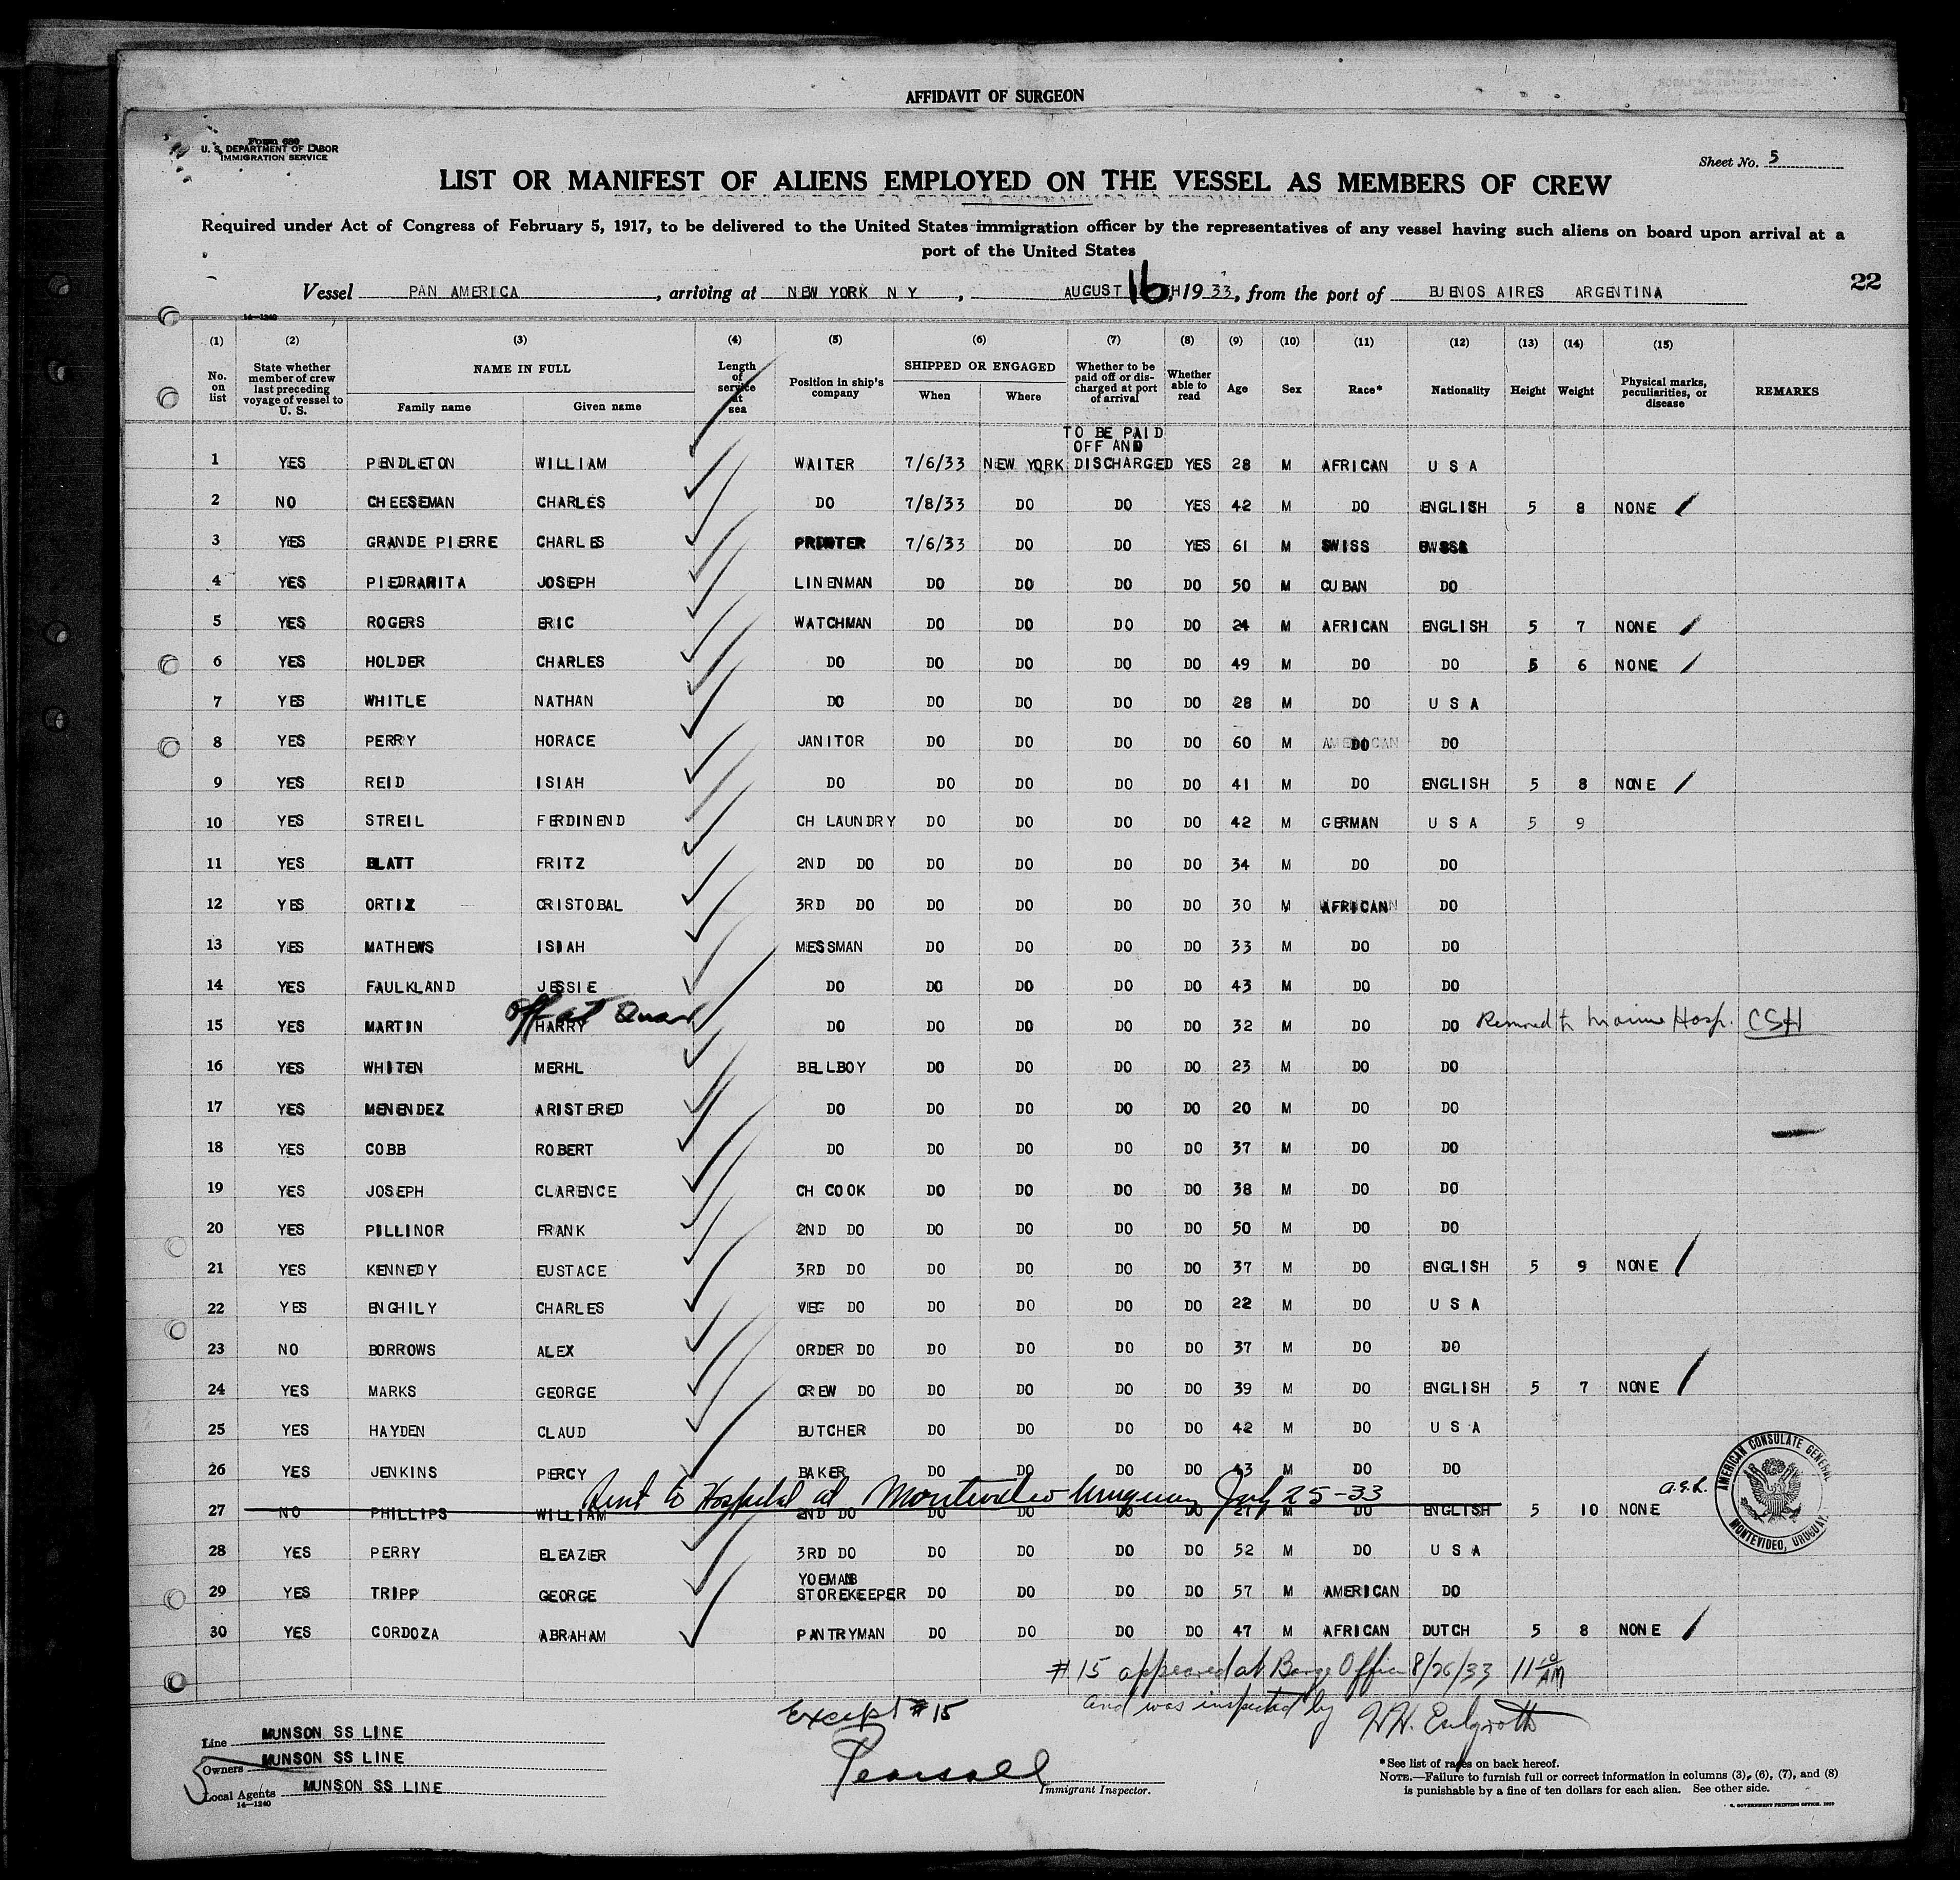 AFFIDAVIT OF SURGEON
Form 680
U. S. DEPARTMENT OF LABOR
IMMIGRATION SERVICE
Sheet No. 5
LIST OR MANIFEST OF ALIENS EMPLOYED ON THE VESSEL AS MEMBERS OF CREW
Required under Act of Congress of February 5, 1917, to be delivered to the United States immigration officer by the representatives of any vessel having such aliens on board upon arrival at a
port of the United States
Vessel PAN AMERICA, arriving at NEW YORK N Y, AUGUST 16 H 19 33, from the port of BUENOS AIRES ARGENTINA
22
14—1240
(1) (2) (3) (4) (5) (6) (7) (8) (9) (10) (11) (12) (13) (14) (15)
No. on list | State whether member of crew last preceding voyage of vessel to U. S. | NAME IN FULL | Length of service at sea | Position in ship's company | SHIPPED OR ENGAGED | Whether to be paid off or discharged at port of arrival | Whether able to read | Age | Sex | Race* | Nationality | Height | Weight | Physical marks, peculiarities, or disease | REMARKS
Family name | Given name | When | Where
TO BE PAID
OFF AND
1 YES PENDLETON WILLIAM WAITER 7/6/33 NEW YORK DISCHARGED YES 28 M AFRICAN U S A
2 NO CHEESEMAN CHARLES DO 7/8/33 DO DO YES 42 M DO ENGLISH 5 8 NONE
3 YES GRANDE PIERRE CHARLES PRINTER 7/6/33 DO DO YES 61 M SWISS
4 YES PIEDRARITA JOSEPH LINENMAN DO DO DO DO 50 M CUBAN DO
5 YES ROGERS ERIC WATCHMAN DO DO DO DO 24 M AFRICAN ENGLISH 5 7 NONE
6 YES HOLDER CHARLES DO DO DO DO DO 49 M DO DO 5 6 NONE
7 YES WHITLE NATHAN DO DO DO DO DO 28 M DO U S A
8 YES PERRY HORACE JANITOR DO DO DO DO 60 M DO DO
9 YES REID ISIAH DO DO DO DO DO 41 M DO ENGLISH 5 8 NONE
10 YES STREIL FERDINEND CH LAUNDRY DO DO DO DO 42 M GERMAN U S A 5 9
11 YES BLATT FRITZ 2ND DO DO DO DO DO 34 M DO DO
12 YES ORTIZ CRISTOBAL 3RD DO DO DO DO DO 30 M AFRICAN DO
13 YES MATHEWS ISIAH MESSMAN DO DO DO DO 33 M DO DO
14 YES FAULKLAND JESSIE DO DO DO DO DO 43 M DO DO
off at Quar
15 YES MARTIN HARRY DO DO DO DO DO 32 M DO DO Removed to Marine Hosp. CSH
16 YES WHITEN MERHL BELLBOY DO DO DO DO 23 M DO DO
17 YES MENENDEZ ARISTERED DO DO DO DO DO 20 M DO DO
18 YES COBB ROBERT DO DO DO DO DO 37 M DO DO
19 YES JOSEPH CLARENCE CH COOK DO DO DO DO 38 M DO DO
20 YES PILLINOR FRANK 2ND DO DO DO DO DO 50 M DO DO
21 YES KENNEDY EUSTACE 3RD DO DO DO DO DO 37 M DO ENGLISH 5 9 NONE
22 YES ENGHILY CHARLES VEG DO DO DO DO DO 22 M DO U S A
23 NO BORROWS ALEX ORDER DO DO DO DO DO 37 M DO DO
24 YES MARKS GEORGE CREW DO DO DO DO DO 39 M DO ENGLISH 5 7 NONE
25 YES HAYDEN CLAUD BUTCHER DO DO DO DO 42 M DO U S A
26 YES JENKINS PERCY BAKER DO DO DO DO 43 M DO DO
Sent to Hospital at Montevideo Uruguay July 25-33
27 NO PHILLIPS WILLIAM 2ND DO DO DO DO DO 27 M DO ENGLISH 5 10 NONE
AMERICAN CONSULATE GENERAL
MONTEVIDEO, URUGUAY.
28 YES PERRY ELEAZER 3RD DO DO DO DO DO 52 M DO U S A
29 YES TRIPP GEORGE STOREKEEPER DO DO DO DO 57 M AMERICAN DO
30 YES CORDOZA ABRAHAM PANTRYMAN DO DO DO DO 47 M AFRICAN DUTCH 5 8 NONE
#15 appeared at Barge Office 8/26/33 11 AM
and was inspected by
Except #15
Pearsall
Immigrant Inspector.
Line MUNSON SS LINE
Owners MUNSON SS LINE
Local Agents MUNSON SS LINE
14—1240
*See list of races on back hereof.
NOTE.—Failure to furnish full or correct information in columns (3), (6), (7), and (8)
is punishable by a fine of ten dollars for each alien. See other side.